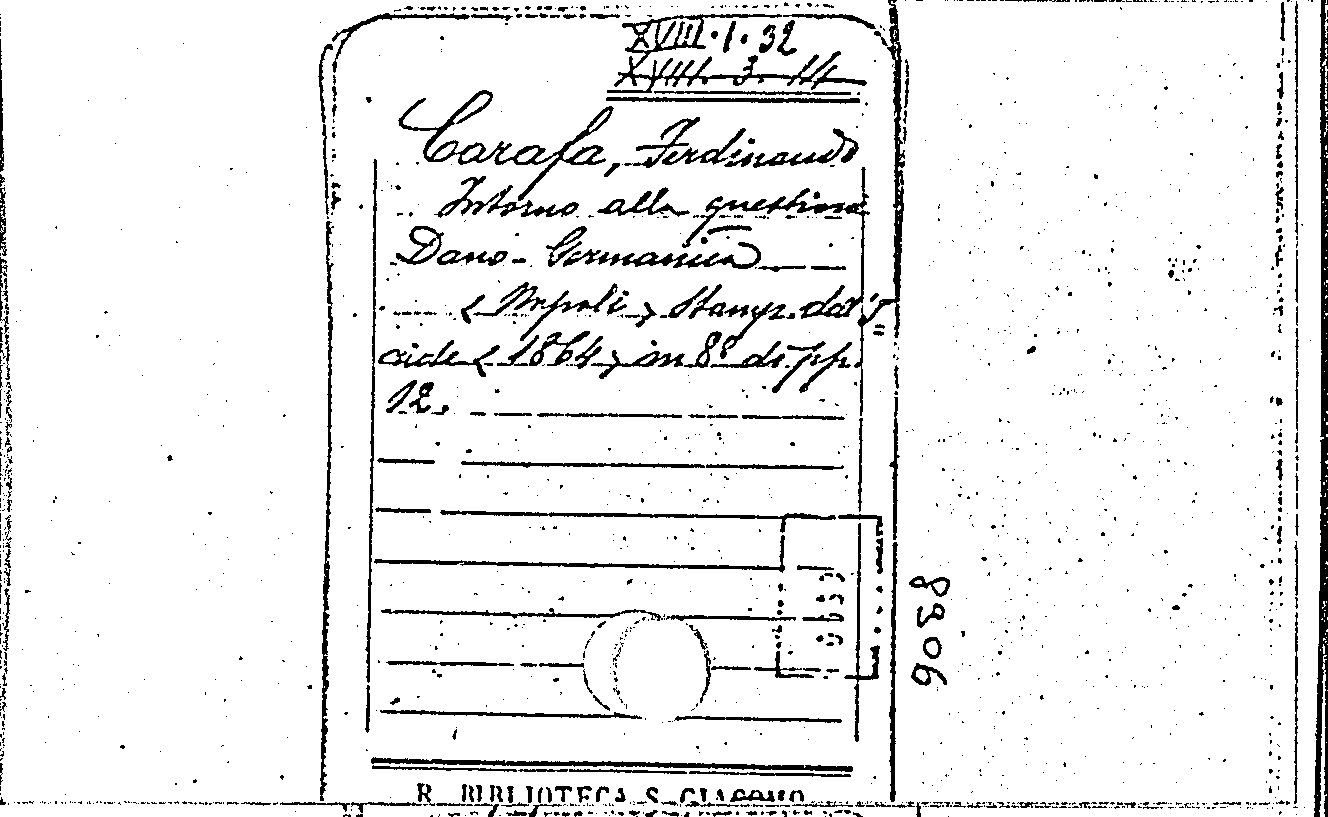 XVIII.1.32
XVIII. 3. 14
Carafa, Ferdinando
Intorno alla questione
Dano-Germanica
< Napoli > Stamp. dell'I
ride < 1864 > in 8° di pp.
12.
R. BIBLIOTECA S. GIACOMO